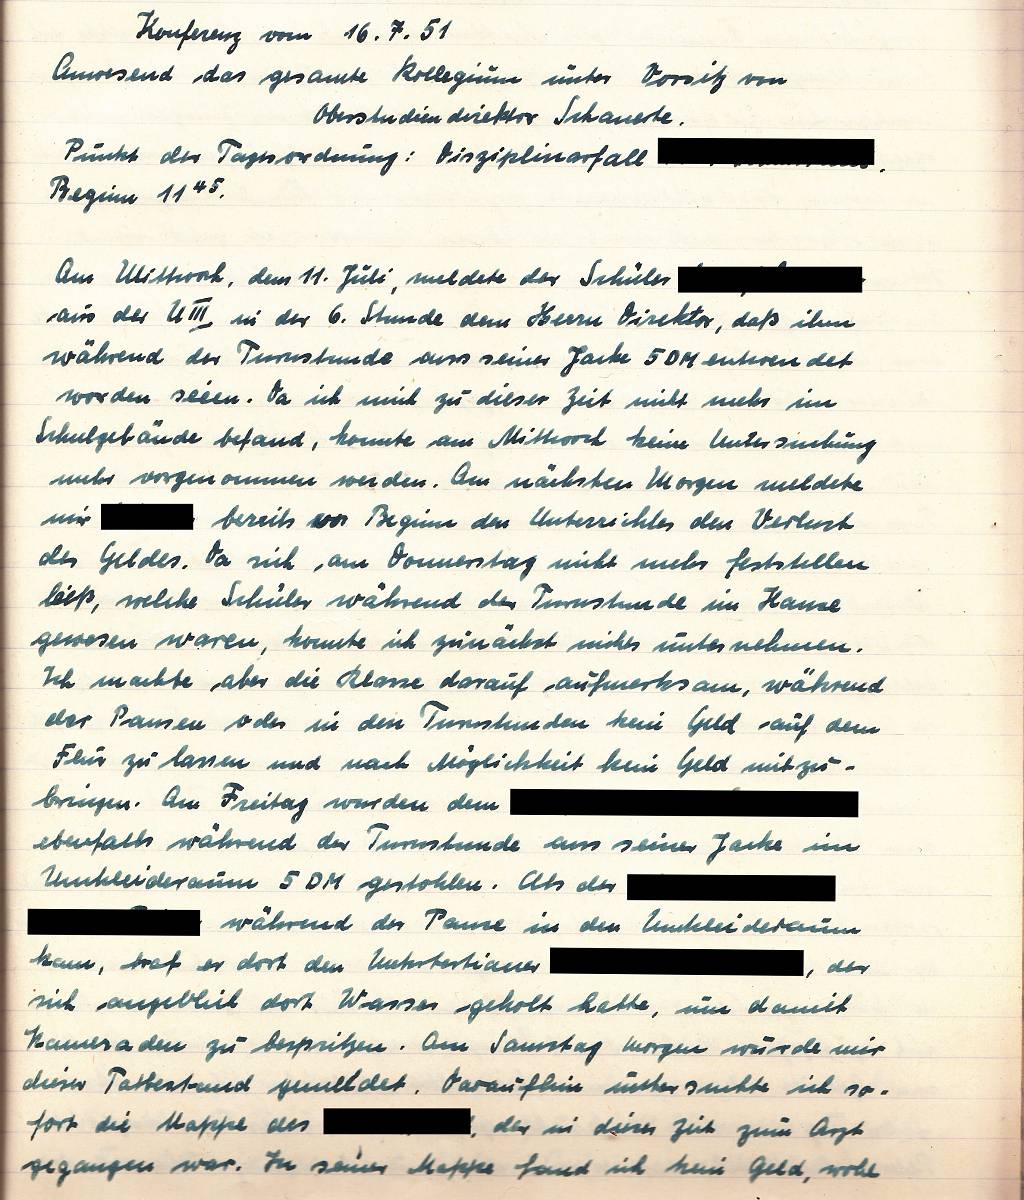 Konferenz vom 16.7.51
Anwesend das gesamte Kollegium unter Vorsitz von
Oberstudiendirektor Schauerte.
Punkt der Tagesordnung: Disziplinarfall .
Beginn 11 45.
Am Mittwoch, dem 11. Juli, meldete der Schüler
aus der U III in der 6. Stunde dem Herrn Direktor, daß ihm
während der Turnstunde aus seiner Jacke 5 DM entwendet
worden seien. Da ich mich zu dieser Zeit nicht mehr im
Schulgebäude befand, konnte am Mittwoch keine Untersuchung
mehr vorgenommen werden. Am nächsten Morgen meldete
mir bereits vor Beginn des Unterrichtes den Verlust
des Geldes. Da sich am Donnerstag nicht mehr feststellen
ließ, welche Schüler während der Turnstunde im Hause
gewesen waren, konnte ich zunächst nichts unternehmen.
Ich machte aber die Klasse darauf aufmerksam, während
der Pausen oder in den Turnstunden kein Geld auf dem
Flur zu lassen und nach Möglichkeit kein Geld mitzu-
bringen. Am Freitag wurden dem
ebenfalls während der Turnstunde aus seiner Jacke im
Umkleideraum 5 DM gestohlen. Als der
während der Pause in den Umkleideraum
kam, traf er dort den Untertertianer , der
sich angeblich dort Wasser geholt hatte, um damit
Kameraden zu bespritzen. Am Samstag morgen wurde mir
dieser Tatbestand gemeldet. Daraufhin untersuchte ich so-
fort die Mappe des , der in dieser Zeit zum Arzt
gegangen war. In seiner Mappe fand ich kein Geld, wohl